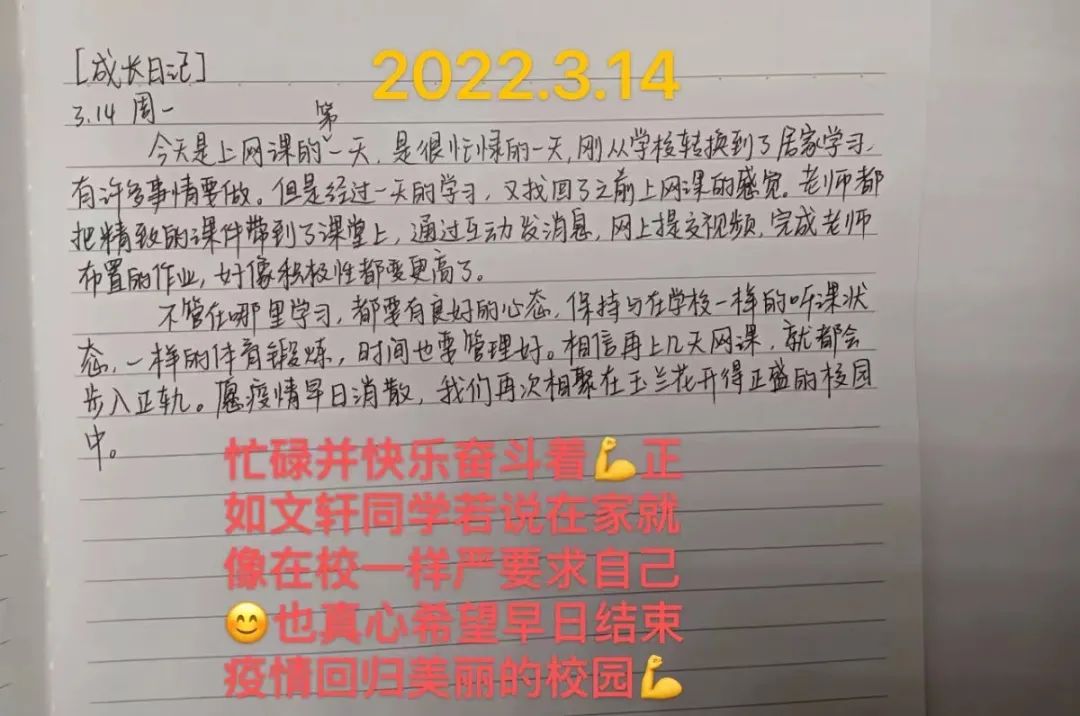 [成长日记]
2022.3.14
3.14 周一
今天是上网课的第一天,是很忙碌的一天,刚从学校转换到了居家学习,
有许多事情要做。但是经过一天的学习,又找回了之前上网课的感觉。老师都
把精致的课件带到了课堂上,通过互动发消息,网上提交视频,完成老师
布置的作业,好像积极性都变更高了。
不管在哪里学习,都要有良好的心态,保持与在学校一样的听课状
态,一样的体育锻炼,时间也要管理好。相信再上几天网课,就都会
步入正轨。愿疫情早日消散,我们再次相聚在玉兰花开得正盛的校园
中。
忙碌并快乐奋斗着💪正
如文轩同学若说在家就
像在校一样严要求自己
😊也真心希望早日结束
疫情回归美丽的校园💪